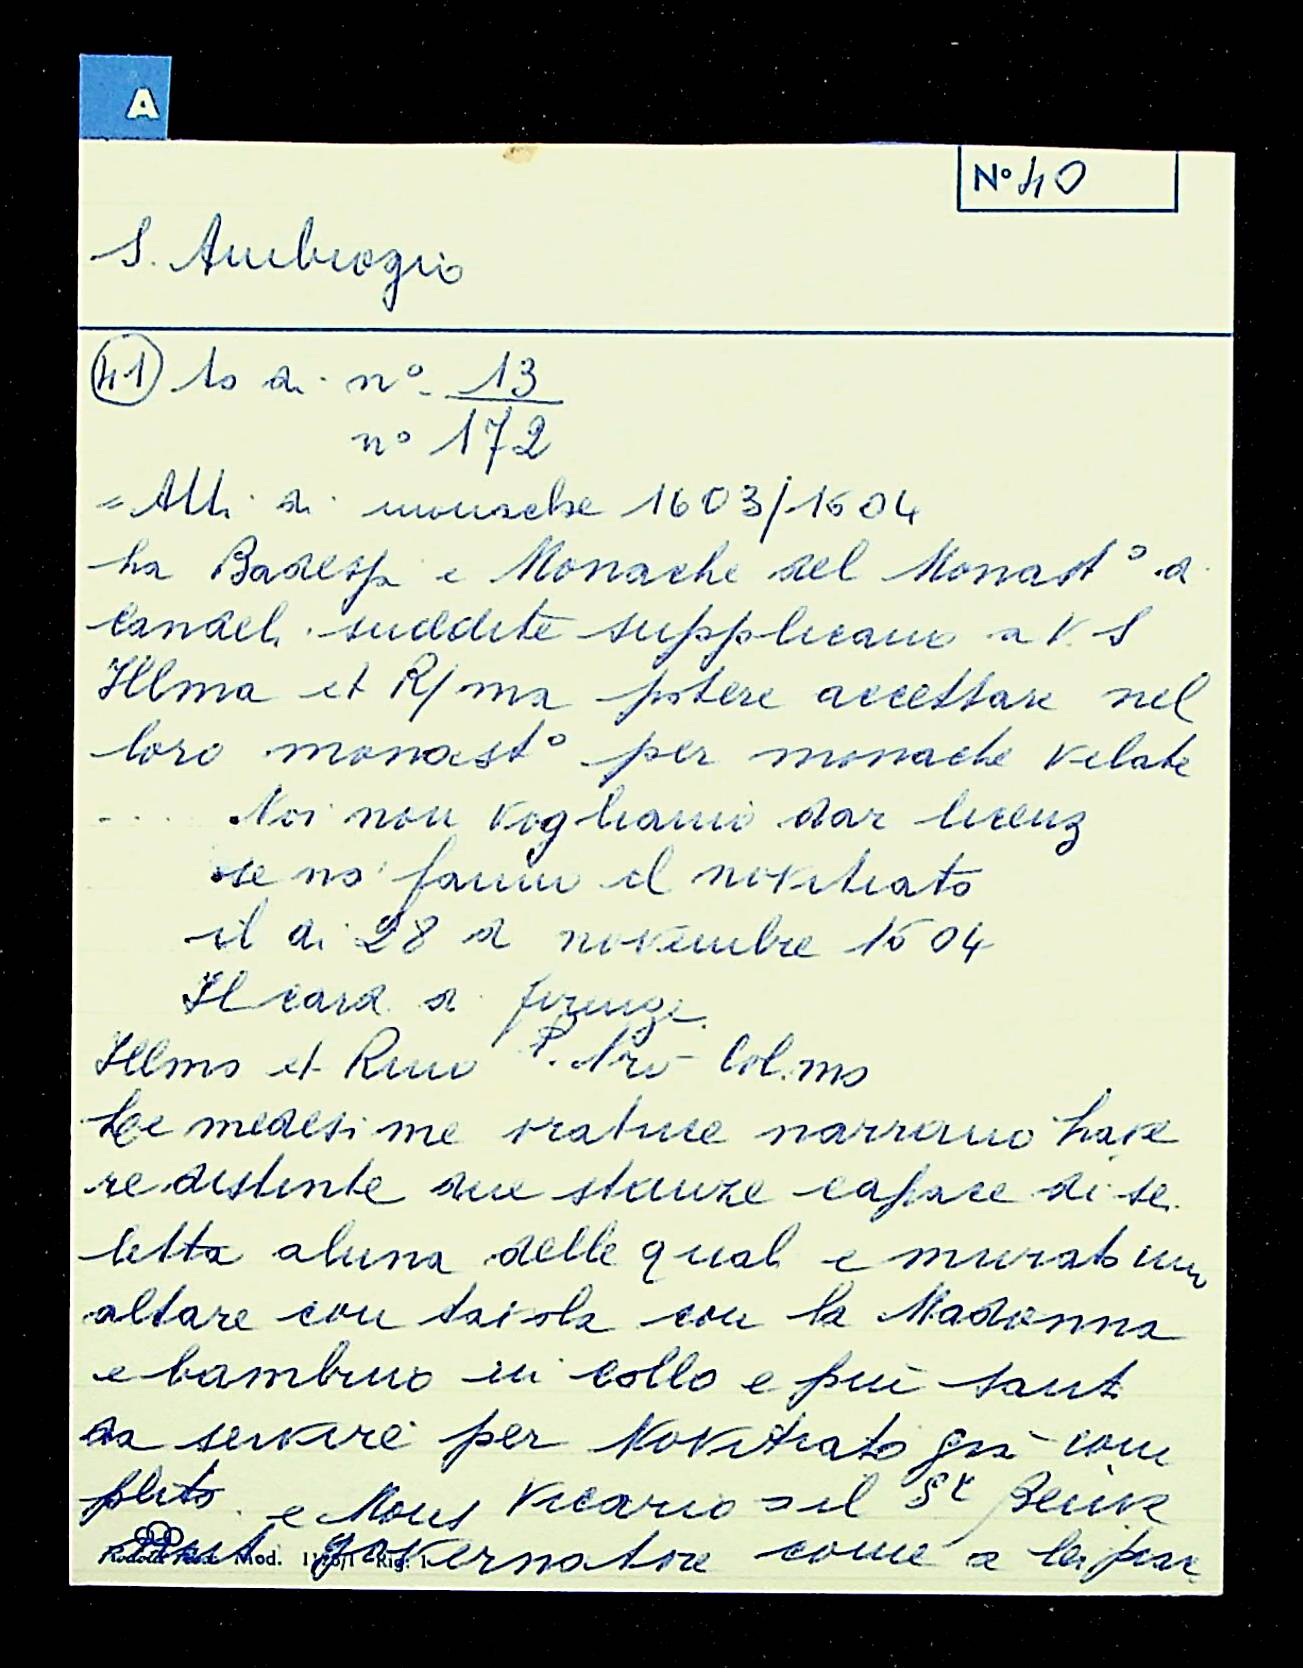 A
N° 40
S. Ambrogio
41 to di n° 13
n° 172
= Atti di monache 1603/1604
La Badessa e Monache del Monast° di
Candeli suddite supplicano a V. S
Illma et R/ma potere accettare nel
loro monast° per monache velate
.... Noi non vogliamo dar licenz
se no fanno il novitiato
il di 28 d novembre 1604
Il card. d. firenze.
Illmo et Rmo P. Nro Col.mo
Le medesime oratrice narrano have
re distinte due stanze capace di sei
letta aluna delle quali e murato uno
altare con taiola con la Madonna
e bambino in collo e più santi
da servire per Novitiato già com
pluto e Mons Vicario del Sr
governatore come a lei pare
Mod.